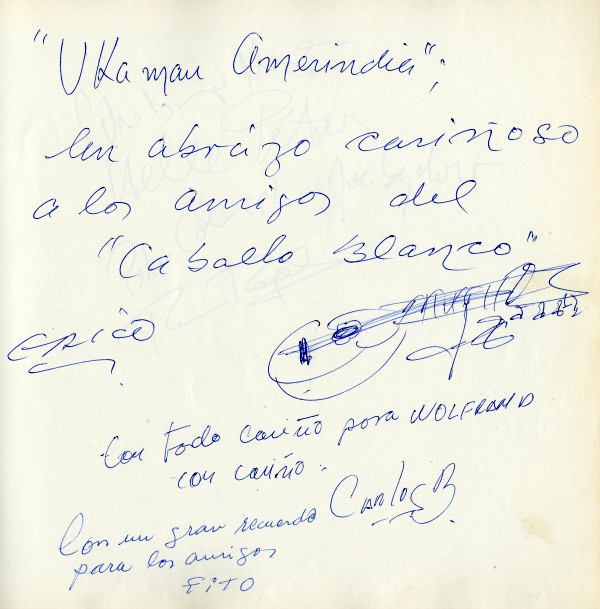 "UKamau Amerindia";
Un abrazo cariñoso
a los amigos del
"Caballo Blanco"
ERICO
Con todo cariño para WOLFRAMD
con cariño.
CARLOS B
Con un gran recuerdo
para los amigos
TITO